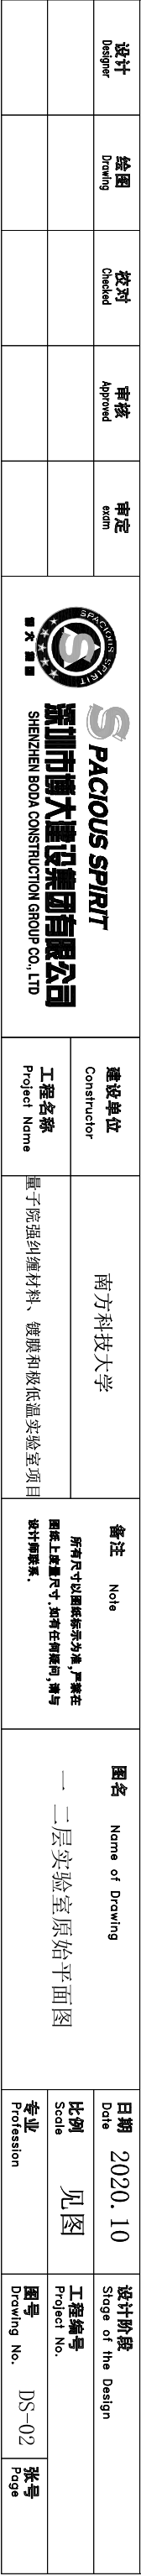 设计
Designer
绘图
Drawing
校对
Checked
审核
Approved
审定
exam
SPACIOUS SPIRIT
S
博大集团
S PACIOUS SPIRIT
深圳市博大建设集团有限公司
SHENZHEN BODA CONSTRUCTION GROUP CO., LTD
建设单位
Constructor
南方科技大学
工程名称
Project Name
量子院强纠缠材料、镀膜和极低温实验室项目
备注 Note
所有尺寸以图纸标示为准,严禁在
图纸上度量尺寸.如有任何疑问,请与
设计师联系.
图名 Name of Drawing
一 二层实验室原始平面图
日期
Date
2020.10
比例
Scale
见图
专业
Profession
设计阶段
Stage of the Design
工程编号
Project No.
图号
Drawing No.
DS-02
张号
Page